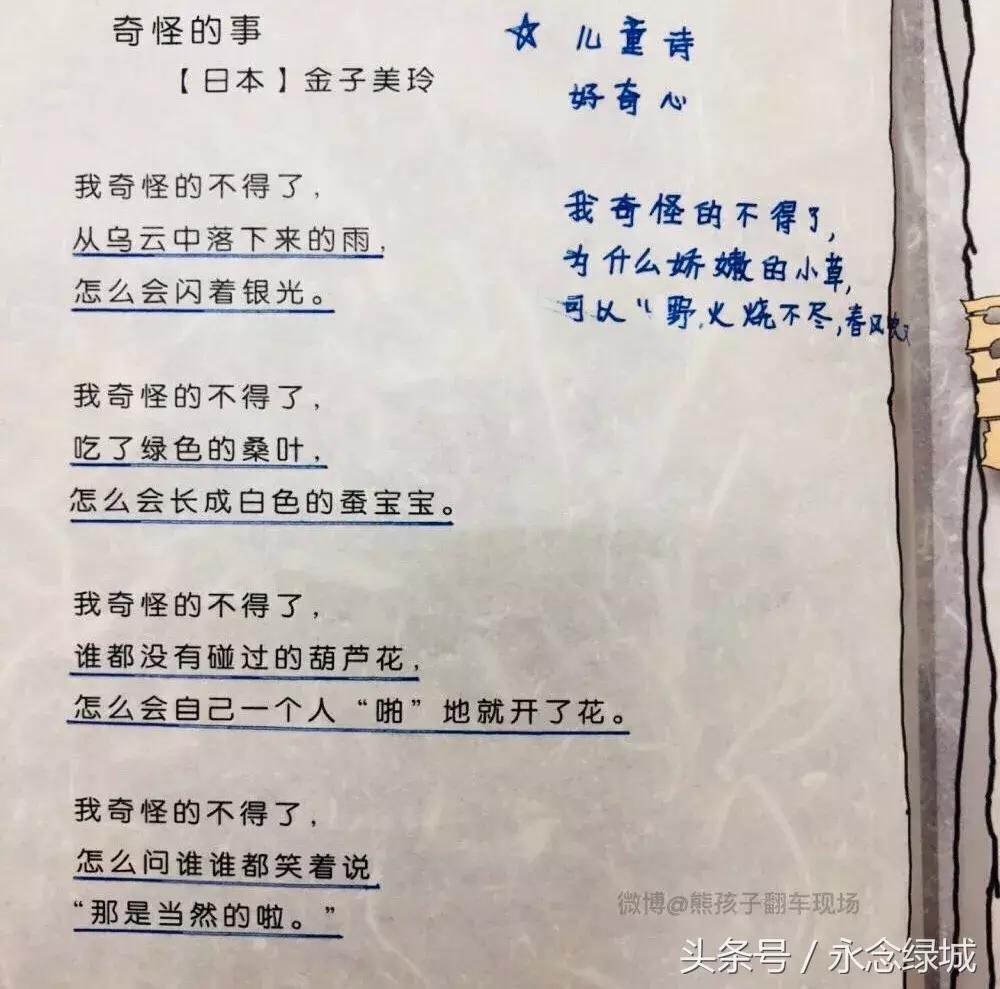 奇怪的事
【日本】金子美玲
我奇怪的不得了，
从乌云中落下来的雨，
怎么会闪着银光。
我奇怪的不得了，
吃了绿色的桑叶，
怎么会长成白色的蚕宝宝。
我奇怪的不得了，
谁都没有碰过的葫芦花，
怎么会自己一个人“啪”地就开了花。
我奇怪的不得了，
怎么问谁谁都笑着说
“那是当然的啦。”
☆ 儿童诗
好奇心
我奇怪的不得了，
为什么娇嫩的小草，
可以“野火烧不尽，春风吹又
微博@熊孩子翻车现场
头条号 / 永念绿城